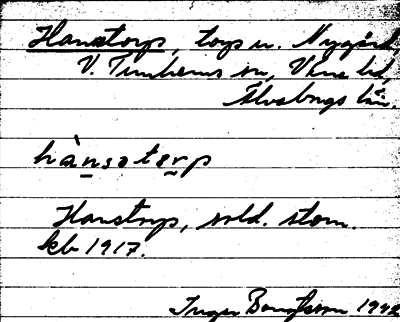 Hanstorp, torp u. Nygård,
V. Tunhems sn, Väne hd,
Älvsborgs län.
hànsatærp
Hanstorp, sold. stom.
kb 1917.
Inger Bengtsson 1942